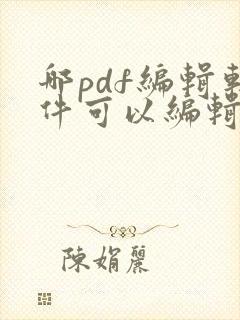 哪pdf编辑軟
件可以编輯
陳娟麗